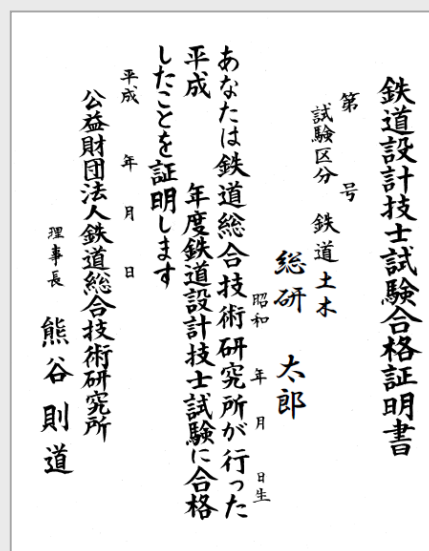 鉄道設計技士試験合格証明書
第　号
試験区分　鉄道土木
総研　太郎
昭和　年　月　日生
あなたは鉄道総合技術研究所が行った
平成　年度鉄道設計技士試験に合格
したことを証明します
平成　年　月　日
公益財団法人鉄道総合技術研究所
理事長　熊谷則道